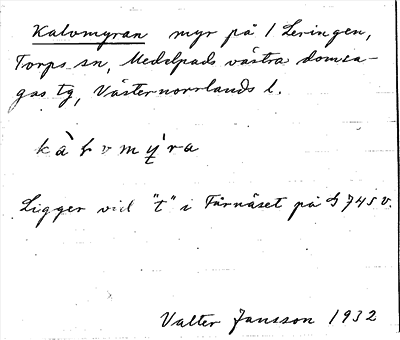 Kalvmyran myr på 1 Leringen,
Torps sn, Medelpads västra domsa-
gas tg, Västernorrlands l.
Ligger vid "t" i Furnäset på G 745 v.
Valter Jansson 1932